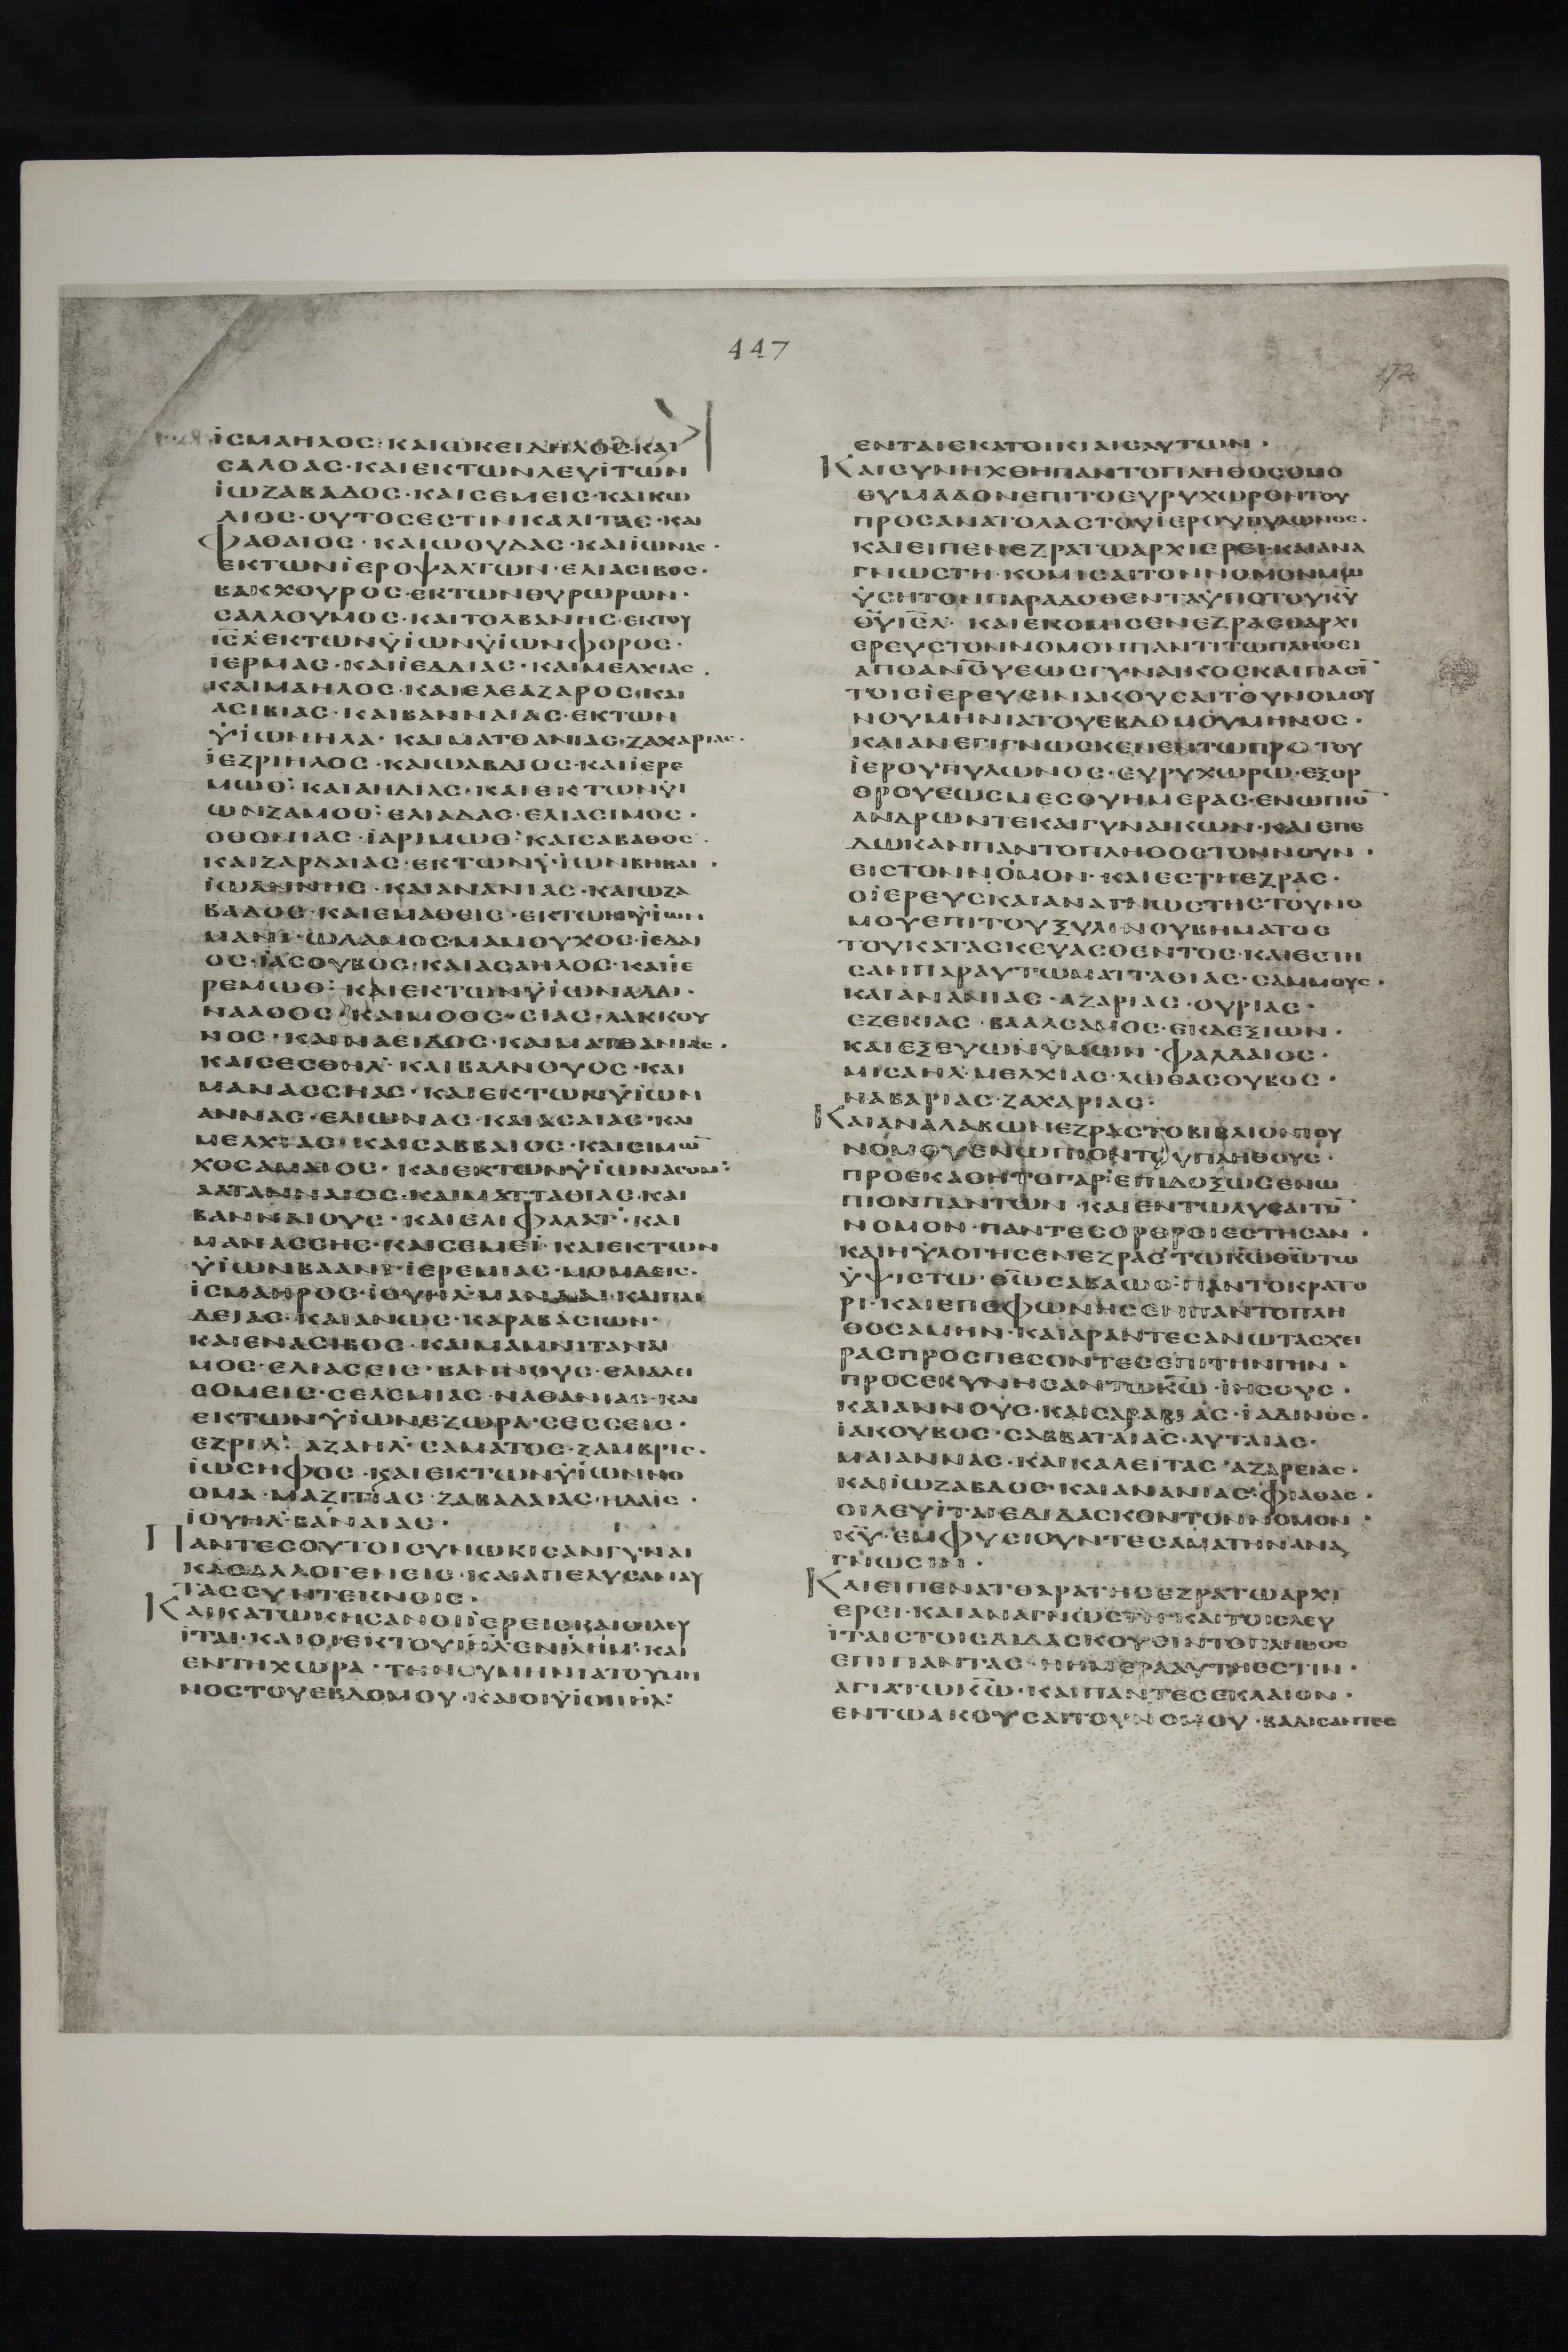 447
172
ΪCΜΑΗΛΟC·ΚΑΙѠΚΕΙΔΗΛΟC·ΚΑΙ
CΑΛΟΑC·ΚΑΙΕΚΤΩΝΛΕΥΪΤΩΝ
ΪΩΖΑΒΑΔΟC·ΚΑΙCΕΜΕΙC·ΚΑΙΚΩ
ΛΙΟC·ΟΥΤΟCΕCΤΙΝΚΑΛΙΤΑC·ΚΑΙ
ΦΑΘΑΙΟC·ΚΑΙΩΟΥΔΑC·ΚΑΙΪΩΝΑC·
ΕΚΤΩΝΪΕΡΟΨΑΛΤΩΝ·ΕΛΙΑCΙΒΟC·
ΒΑΚΧΟΥΡΟC·ΕΚΤΩΝΘΥΡΩΡΩΝ·
CΑΛΛΟΥΜΟC·ΚΑΙΤΟΛΒΑΝΗC·ΕΚΤΟΥ
ΙCΛΕΚΤΩΝΫΪΩΝΫΪΩΝΦΟΡΟC·
ΪΕΡΜΑC·ΚΑΙΪΕΔΔΙΑC·ΚΑΙΜΕΛΧΙΑC·
ΚΑΙΜΑΗΛΟC·ΚΑΙΕΛΕΑΖΑΡΟC·ΚΑΙ
ΑCΙΒΙΑC·ΚΑΙΒΑΝΝΑΙΑC·ΕΚΤΩΝ
ΫΪΩΝΗΛΑ·ΚΑΙΜΑΤΘΑΝΙΑC·ΖΑΧΑΡΙΑC·
ΪΕΖΡΙΗΛΟC·ΚΑΙΩΑΒΔΙΟC·ΚΑΙΪΕΡΕ
ΜΩΘ·ΚΑΙΑΗΔΙΑC·ΚΑΙΕΚΤΩΝΫΙ
ΩΝΖΑΜΟΘ·ΕΛΙΑΔΑC·ΕΛΙΑCΙΜΟC·
ΟΘΟΝΙΑC·ΪΑΡΙΜΩΘ·ΚΑΙCΑΒΑΘΟC·
ΚΑΙΖΑΡΔΑΙΑC·ΕΚΤΩΝΫΪΩΝΒΗΒΑΙ·
ΪΩΑΝΝΗC·ΚΑΙΑΝΑΝΙΑC·ΚΑΙΩΖΑ
ΒΑΔΟC·ΚΑΙΕΜΑΘΕΙC·ΕΚΤΩΝΫΪΩΝ
ΜΑΝΙ·ΩΛΑΜΟC·ΜΑΜΟΥΧΟC·ΪΕΔΑΙ
ΟC·ΪΑCΟΥΒΟC·ΚΑΙΑCΑΗΛΟC·ΚΑΙΪΕ
ΡΕΜΩΘ·ΚΑΙΕΚΤΩΝΫΪΩΝΑΔΔΙ·
ΝΑΑΘΟC·ΚΑΙΜΟΟC·CΙΑC·ΛΑΚΚΟΥ
ΝΟC·ΚΑΙΝΑΕΙΔΟC·ΚΑΙΜΑΤΘΑΝΙΑC·
ΚΑΙCΕCΘΗΛ·ΚΑΙΒΑΛΝΟΥΟC·ΚΑΙ
ΜΑΝΑCCΗΑC·ΚΑΙΕΚΤΩΝΫΪΩΝ
ΑΝΝΑC·ΕΛΙΩΝΑC·ΚΑΙΑCΑΙΑC·ΚΑΙ
ΜΕΛΧΙΑC·ΚΑΙCΑΒΒΑΙΟC·ΚΑΙCΙΜΩ
ΧΟCΑΜΑΙΟC·ΚΑΙΕΚΤΩΝΫΪΩΝΑCΟΜ·
ΑΛΤΑΝΝΑΙΟC·ΚΑΙΜΑΤΤΑΘΙΑC·ΚΑΙ
ΒΑΝΝΑΙΟΥC·ΚΑΙΕΛΙΦΑΛΑΤ·ΚΑΙ
ΜΑΝΑCCΗC·ΚΑΙCΕΜΕΪ·ΚΑΙΕΚΤΩΝ
ΫΪΩΝΒΑΑΝΙ·ΪΕΡΕΜΙΑC·ΜΟΜΔΕΙC·
ΪCΜΑΗΡΟC·ΪΟΥΗΛ·ΜΑΝΔΑΙ·ΚΑΙΠΑΙ
ΔΕΙΑC·ΚΑΙΑΝΩC·ΚΑΡΑΒΑCΙΩΝ·
ΚΑΙΕΝΑCΙΒΟC·ΚΑΙΜΑΜΝΙΤΑΝΑΙ
ΜΟC·ΕΛΙΑCΕΙC·ΒΑΝΝΟΥC·ΕΛΙΑΛΕΙ
CΟΜΕΙC·CΕΛΕΜΙΑC·ΝΑΘΑΝΙΑC·ΚΑΙ
ΕΚΤΩΝΫΪΩΝΕΖΩΡΑ·CΕCCΕΙC·
ΕΖΡΙΛ·ΑΖΑΗΛ·CΑΜΑΤΟC·ΖΑΜΒΡΙC·
ΪΩCΗΦΟC·ΚΑΙΕΚΤΩΝΫΪΩΝΝΟ
ΟΜΑ·ΜΑΖΙΤΙΑC·ΖΑΒΑΔΑΙΑC·ΗΔΑΙC·
ΪΟΥΗΛ·ΒΑΝΑΙΑC·
ΠΑΝΤΕCΟΥΤΟΙCΥΝΩΚΙCΑΝΓΥΝΑΙ
ΚΑCΑΛΛΟΓΕΝΕΙC·ΚΑΙΑΠΕΛΥCΑΝΑΥ
ΤΑCCΥΝΤΕΚΝΟΙC·
ΚΑΙΚΑΤΩΚΗCΑΝΟΙΪΕΡΕΙCΚΑΙΟΙΛΕΥ
ΪΤΑΙ·ΚΑΙΟΙΕΚΤΟΥΙΗΛΕΝΙΛΗΜ·ΚΑΙ
ΕΝΤΗΧΩΡΑ·ΤΗΝΟΥΜΗΝΙΑΤΟΥΜΗ
ΝΟCΤΟΥΕΒΔΟΜΟΥ·ΚΑΙΟΙΫΪΟΙΙΗΛ·
ΕΝΤΑΙCΚΑΤΟΙΚΙΑΙCΑΥΤΩΝ·
ΚΑΙCΥΝΗΧΘΗΠΑΝΤΟΠΛΗΘΟCΟΜΟ
ΘΥΜΑΔΟΝΕΠΙΤΟΕΥΡΥΧΩΡΟΝΤΟΥ
ΠΡΟCΑΝΑΤΟΛΑCΤΟΥΪΕΡΟΥΠΥΛΩΝΟC·
ΚΑΙΕΙΠΕΝΕΖΡΑΤΩΑΡΧΙΕΡΕΙ·ΚΑΙΑΝΑ
ΓΝΩCΤΗ·ΚΟΜΙCΑΙΤΟΝΝΟΜΟΝΜΩ
ΫCΗΤΟΝΠΑΡΑΔΟΘΕΝΤΑΫΠΟΤΟΥΚΥ
ΘΥΙCΛ·ΚΑΙΕΚΟΜΙCΕΝΕΖΡΑCΟΑΡΧΙ
ΕΡΕΥCΤΟΝΝΟΜΟΝΠΑΝΤΙΤΩΠΛΗΘΕΙ
ΑΠΟΑΝΟΥΕΩCΓΥΝΑΙΚΟCΚΑΙΠΑCΙ
ΤΟΙCΪΕΡΕΥCΙΝΑΚΟΥCΑΙΤΟΥΝΟΜΟΥ
ΝΟΥΜΗΝΙΑΤΟΥΕΒΔΟΜΟΥΜΗΝΟC·
ΚΑΙΑΝΕΓΙΓΝΩCΚΕΝΕΝΤΩΠΡΟΤΟΥ
ΪΕΡΟΥΠΥΛΩΝΟC·ΕΥΡΥΧΩΡΩ·ΕΞΟΡ
ΘΡΟΥΕΩCΜΕCΟΥΗΜΕΡΑC·ΕΝΩΠΙΟ
ΑΝΔΡΩΝΤΕΚΑΙΓΥΝΑΙΚΩΝ·ΚΑΙΕΠΕ
ΔΩΚΑΝΠΑΝΤΟΠΛΗΘΟCΤΟΝΝΟΥΝ·
ΕΙCΤΟΝΝΟΜΟΝ·ΚΑΙΕCΤΗΕΖΡΑC·
ΟΪΕΡΕΥCΚΑΙΑΝΑΓΝΩCΤΗCΤΟΥΝΟ
ΜΟΥΕΠΙΤΟΥΞΥΛΙΝΟΥΒΗΜΑΤΟC
ΤΟΥΚΑΤΑCΚΕΥΑCΘΕΝΤΟC·ΚΑΙΕCΤΗ
CΑΝΠΑΡΑΥΤΩΜΑΤΤΑΘΙΑC·CΑΜΜΟΥC·
ΚΑΙΑΝΑΝΙΑC·ΑΖΑΡΙΑC·ΟΥΡΙΑC·
ΕΖΕΚΙΑC·ΒΑΑΛCΑΜΟC·ΕΚΔΕΞΙΩΝ·
ΚΑΙΕΞΕΥΩΝΥΜΩΝ·ΦΑΛΔΑΙΟC·
ΜΙCΑΗΛ·ΜΕΛΧΙΑC·ΛΩΘΑCΟΥΒΟC·
ΝΑΒΑΡΙΑC·ΖΑΧΑΡΙΑC:
ΚΑΙΑΝΑΛΑΒΩΝΕΖΡΑCΤΟΒΙΒΛΙΟΝΤΟΥ
ΝΟΜΟΥΕΝΩΠΙΟΝΤΟΥΠΛΗΘΟΥC·
ΠΡΟΕΚΑΘΗΤΟΓΑΡΕΠΙΔΟΞΩCΕΝΩ
ΠΙΟΝΠΑΝΤΩΝ·ΚΑΙΕΝΤΩΛΥCΑΙΤΟ
ΝΟΜΟΝ·ΠΑΝΤΕCΟΡΘΡΟΙΕCΤΗCΑΝ·
ΚΑΙΗΥΛΟΓΗCΕΝΕΖΡΑCΤΩΚΩΘΩΤΩ
ΫΨΙCΤΩ·ΘΩCΑΒΑΩΘ·ΠΑΝΤΟΚΡΑΤΟ
ΡΙ·ΚΑΙΕΠΕΦΩΝΗCΕΝΠΑΝΤΟΠΛΗ
ΘΟCΑΜΗΝ·ΚΑΙΑΡΑΝΤΕCΑΝΩΤΑCΧΕΙ
ΡΑCΠΡΟCΠΕCΟΝΤΕCΕΠΙΤΗΝΓΗΝ·
ΠΡΟCΕΚΥΝΗCΑΝΤΩΚΩ·ΙΗCΟΥC·
ΚΑΙΑΝΝΟΥC·ΚΑΙCΑΡΑΒΙΑC·ΪΑΔΙΝΟC·
ΪΑΚΟΥΒΟC·CΑΒΒΑΤΑΙΑC·ΑΥΤΑΙΑC·
ΜΑΙΑΝΝΑC·ΚΑΙΚΑΛΕΙΤΑC·ΑΖΑΡΕΙΑC·
ΚΑΙΪΩΖΑΒΔΟC·ΚΑΙΑΝΑΝΙΑC·ΦΙΑΘΑC·
ΟΙΛΕΥΪΤΑΙΕΔΙΔΑCΚΟΝΤΟΝΝΟΜΟΝ·
ΚΥ·ΕΜΦΥCΙΟΥΝΤΕCΑΜΑΤΗΝΑΝΑ
ΓΝΩCΙΝ·
ΚΑΙΕΙΠΕΝΑΤΘΑΡΑΤΗCΕΖΡΑΤΩΑΡΧΙ
ΕΡΕΙ·ΚΑΙΑΝΑΓΝΩCΤΗ·ΚΑΙΤΟΙCΛΕΥ
ΪΤΑΙCΤΟΙCΔΙΔΑCΚΟΥCΙΝΤΟΠΛΗΘΟC
ΕΠΙΠΑΝΤΑC·ΗΗΜΕΡΑΑΥΤΗΕCΤΙΝ·
ΑΓΙΑΤΩΚΩ·ΚΑΙΠΑΝΤΕCΕΚΛΑΙΟΝ·
ΕΝΤΩΑΚΟΥCΑΙΤΟΥΝΟΜΟΥ·ΒΑΔΙCΑΝΤΕC